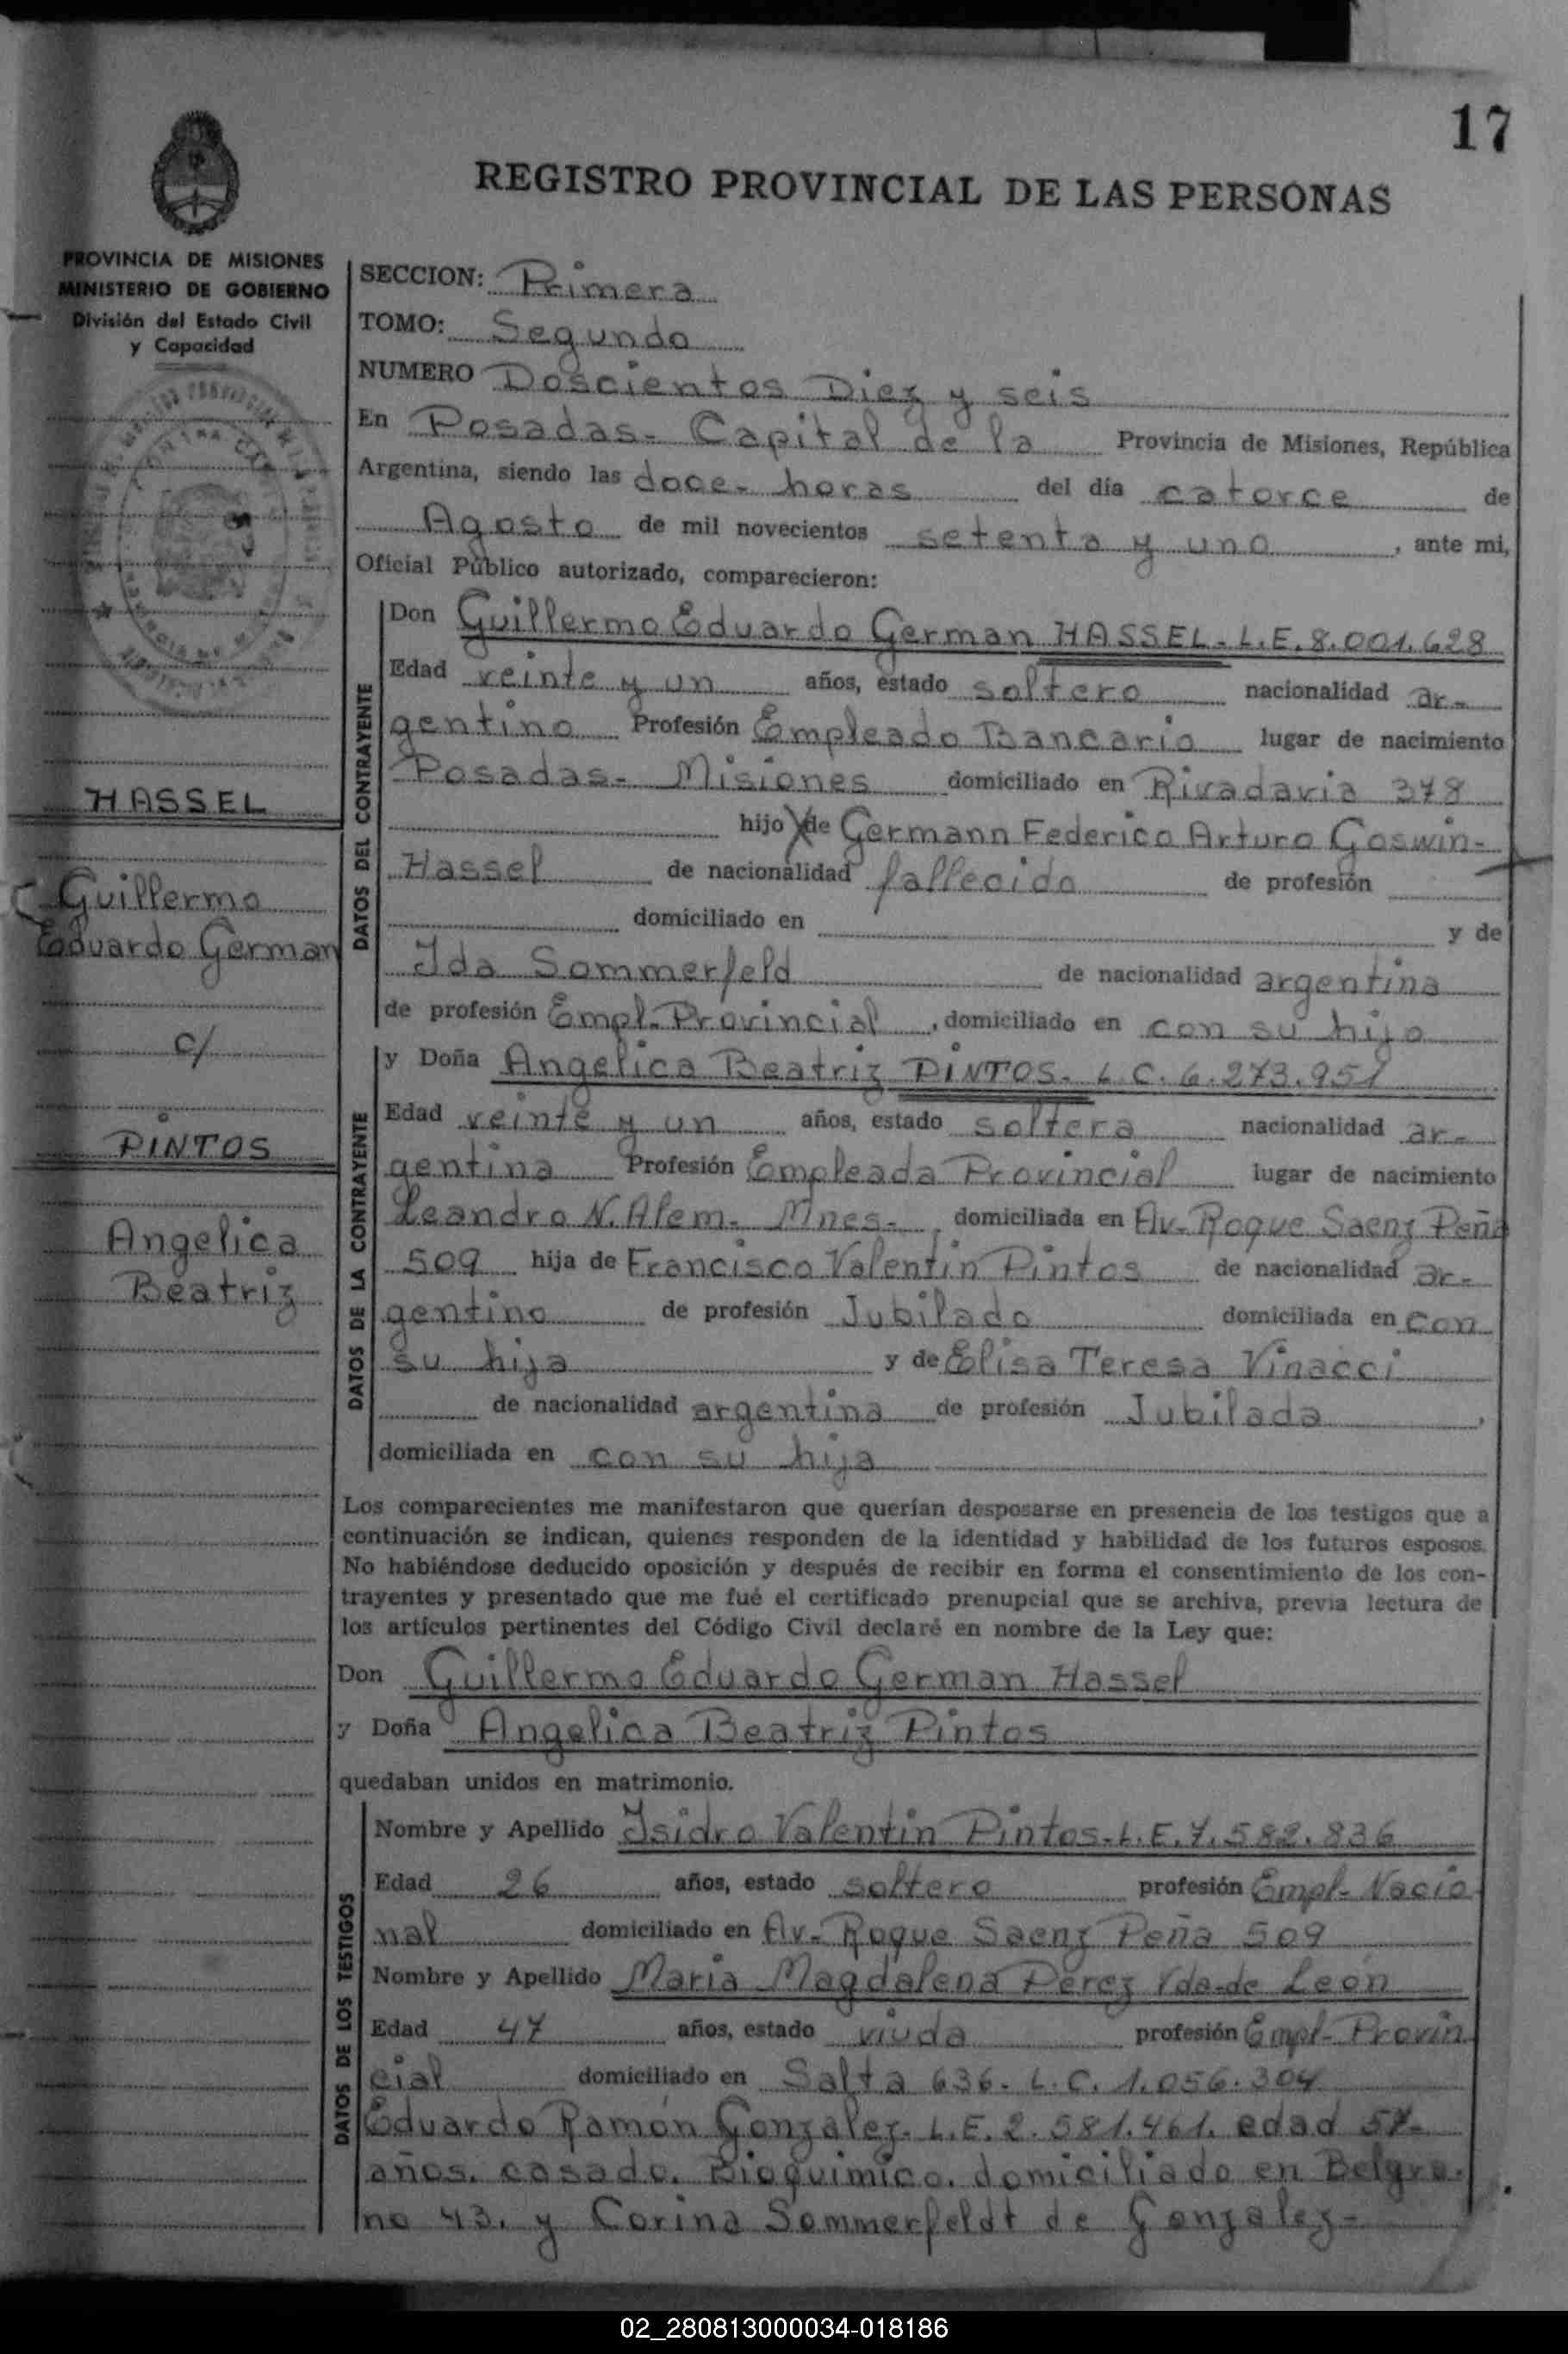 17
REGISTRO PROVINCIAL DE LAS PERSONAS
PROVINCIA DE MISIONES
MINISTERIO DE GOBIERNO
División del Estado Civil
y Capacidad
HASSEL
Guillermo
Eduardo German
c/
PINTOS
Angelica
Beatriz
SECCION: Primera
TOMO: Segundo
NUMERO Doscientos Diez y seis
En Posadas- Capital de la Provincia de Misiones, República
Argentina, siendo las doce- horas del día catorce de
Agosto de mil novecientos setenta y uno, ante mi,
Oficial Público autorizado, comparecieron:
DATOS DEL CONTRAYENTE
Don Guillermo Eduardo German HASSEL- L.E. 8.001.628
Edad veinte y un años, estado soltero nacionalidad ar-
gentino Profesión Empleado Bancario lugar de nacimiento
Posadas- Misiones domiciliado en Rivadavia 378
hijo de Germann Federico Arturo Goswin-
Hassel de nacionalidad fallecido de profesión
domiciliado en y de
Ida Sommerfeld de nacionalidad argentina
de profesión Empl. Provincial, domiciliado en con su hijo
DATOS DE LA CONTRAYENTE
y Doña Angelica Beatriz PINTOS- L.C. 6.273.951
Edad veinte y un años, estado soltera nacionalidad ar-
gentina Profesión Empleada Provincial lugar de nacimiento
Leandro N. Alem- Mnes-, domiciliada en Av- Roque Saenz Peña
509 hija de Francisco Valentin Pintos de nacionalidad ar-
gentino de profesión Jubilado domiciliada en con
su hija y de Elisa Teresa Vinacci
de nacionalidad argentina de profesión Jubilada,
domiciliada en con su hija
Los comparecientes me manifestaron que querían desposarse en presencia de los testigos que a
continuación se indican, quienes responden de la identidad y habilidad de los futuros esposos.
No habiéndose deducido oposición y después de recibir en forma el consentimiento de los con-
trayentes y presentado que me fué el certificado prenupcial que se archiva, previa lectura de
los artículos pertinentes del Código Civil declaré en nombre de la Ley que:
Don Guillermo Eduardo German Hassel
y Doña Angelica Beatriz Pintos
quedaban unidos en matrimonio.
DATOS DE LOS TESTIGOS
Nombre y Apellido Isidro Valentin Pintos- L.E. 7.582.836
Edad 26 años, estado soltero profesión Empl- Nacio
nal domiciliado en Av- Roque Saenz Peña 509
Nombre y Apellido Maria Magdalena Perez Vda-de León
Edad 47 años, estado viuda profesión Empl- Provin
cial domiciliado en Salta 636- L.C. 1.056.304
Eduardo Ramón Gonzalez- L.E. 2.581.461. edad 57-
años. casado. Bioquimico. domiciliado en Belgra-
no 43. y Corina Sommerfeldt de Gonzalez-
02_280813000034-018186